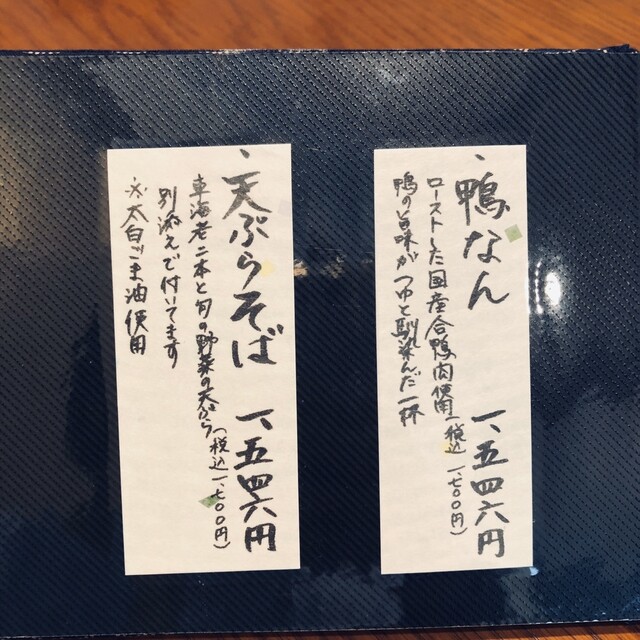 ・鴨なん 一、五四六円
ローストした国産合鴨肉使用(税込一、七〇〇円)
鴨の旨味がつゆと馴染んだ一杯
・天ぷらそば 一、五四六円
車海老二本と旬の野菜の天ぷら(税込一、七〇〇円)
別添えで付いてます
※太白ごま油使用